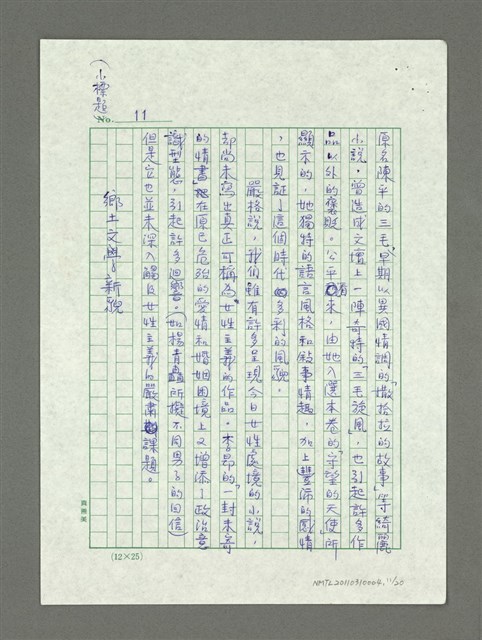 No. 11
原名陳平的三毛，早期以異國情調的「撒哈拉的故事」等綺麗
小說，曾造成文壇上一陣奇特的「三毛旋風」，也引起許多作
品以外的褒貶。公平看來，由她入選本卷的「守望的天使」所
顯示的，她獨特的語言風格和敍事情趣，加上豐沛的感情
，也見証了這個時代多利的風貌。
嚴格說，我們雖有許多呈現今日女性處境的小說，
却尚未寫出真正可稱為「女性主義」的作品。李昂的「一封未寄
的情書」在原已危殆的愛情和婚姻困境上又增添了政治意
識型態，引起許多迴響。（如楊青矗所擬不同男子的回信）
但是它也並未深入觸及女性主義的嚴肅課題。
（小標題
鄉土文學新貌
(12×25)
NMTL20110310004, 11/20